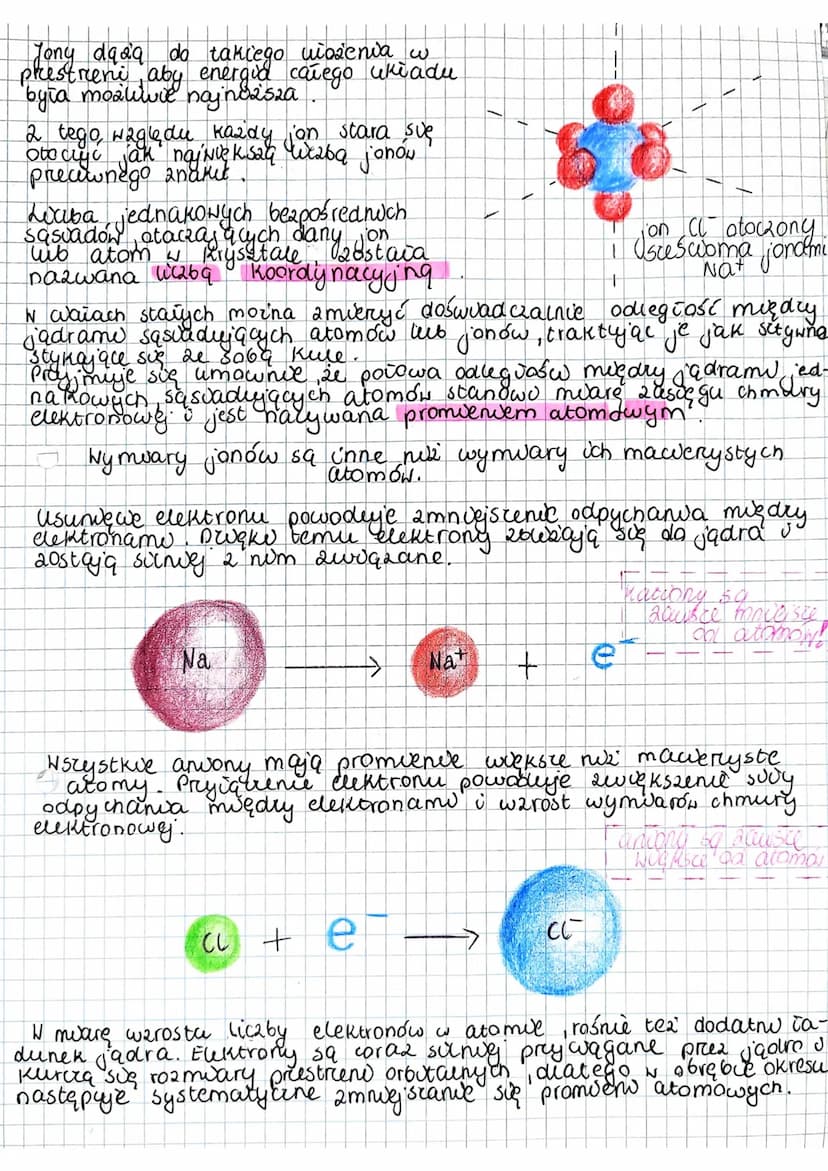 Jony dążą do takiego ułożenia w
przestrzeni, aby energia całego układu
była możliwie najniższa.
Z tego względu każdy jon stara się
otoczyć jak największą liczbą jonów
przeciwnego znaku.
Liczba jednakowych bezpośrednich
sąsiadów, otaczających dany jon
lub atom w krysztale, została
nazwana liczbą koordynacyjną
jon Cl⁻ otoczony
sześcioma jonami
Na⁺
W ciałach stałych można zmierzyć doświadczalnie odległość między
jądrami sąsiadujących atomów lub jonów, traktując je jak sztywne
stykające się ze sobą kule.
Przyjmuje się umownie, że połowa odległości między jądrami jed-
nakowych, sąsiadujących atomów stanowi miarę zasięgu chmury
elektronowej i jest nazywana promieniem atomowym.
Wymiary jonów są inne niż wymiary ich macierzystych
atomów.
Usunięcie elektronu powoduje zmniejszenie odpychania między
elektronami. Dzięki temu elektrony zbliżają się do jądra i
zostają silniej z nim związane.
kationy są
zawsze mniejsze
od atomów!
Na → Na⁺ + e⁻
Wszystkie aniony mają promienie większe niż macierzyste
atomy. Przyłączenie elektronu powoduje zwiększenie siły
odpychania między elektronami i wzrost wymiarów chmury
elektronowej.
aniony są zawsze
większe od atomów
Cl + e⁻ → Cl⁻
W miarę wzrostu liczby elektronów w atomie, rośnie też dodatni ła-
dunek jądra. Elektrony są coraz silniej przyciągane przez jądro i
kurczą się rozmiary przestrzeni orbitalnych, dlatego w obrębie okresu
następuje systematyczne zmniejszanie się promieni atomowych.